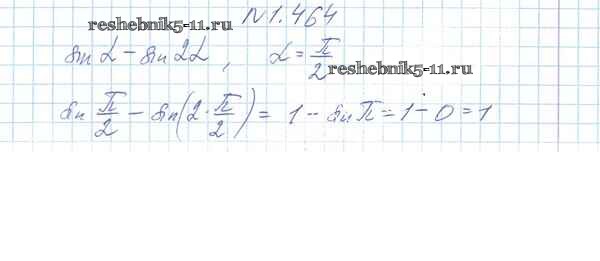 N1.464
reshebnik5-11.ru
sin α - sin 2α, α = π/2
reshebnik5-11.ru
sin π/2 - sin(2·π/2) = 1 - sin π = 1 - 0 = 1